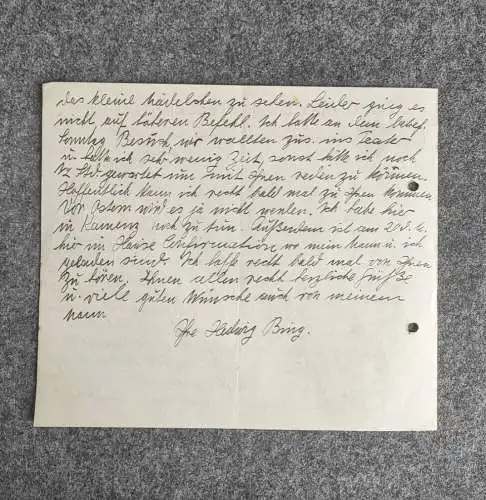 das kleine Mädelchen zu sehen. Leider ging es
nicht auf höheren Befehl. Ich hatte an dem betref.
Sonntag Besuch, wir wollten zus. ins Teater
u. hatte ich sehr wenig Zeit, sonst hätte ich noch
½ Std. gewartet um mit Ihnen reden zu können.
Hoffentlich kann ich recht bald mal zu Ihnen kommen
Vor Ostern wird es ja nicht werden. Ich habe hier
in Kamenz noch zu tun. Außerdem ist am
hier im Hause Confirmation wo mein Mann u. ich
geladen sind. Ich hoffe recht bald mal von Ihnen
zu hören. Ihnen allen recht herzliche Grüße
u. viele guten Wünsche auch von meinem
Mann
Ihre Hedwig Bing.